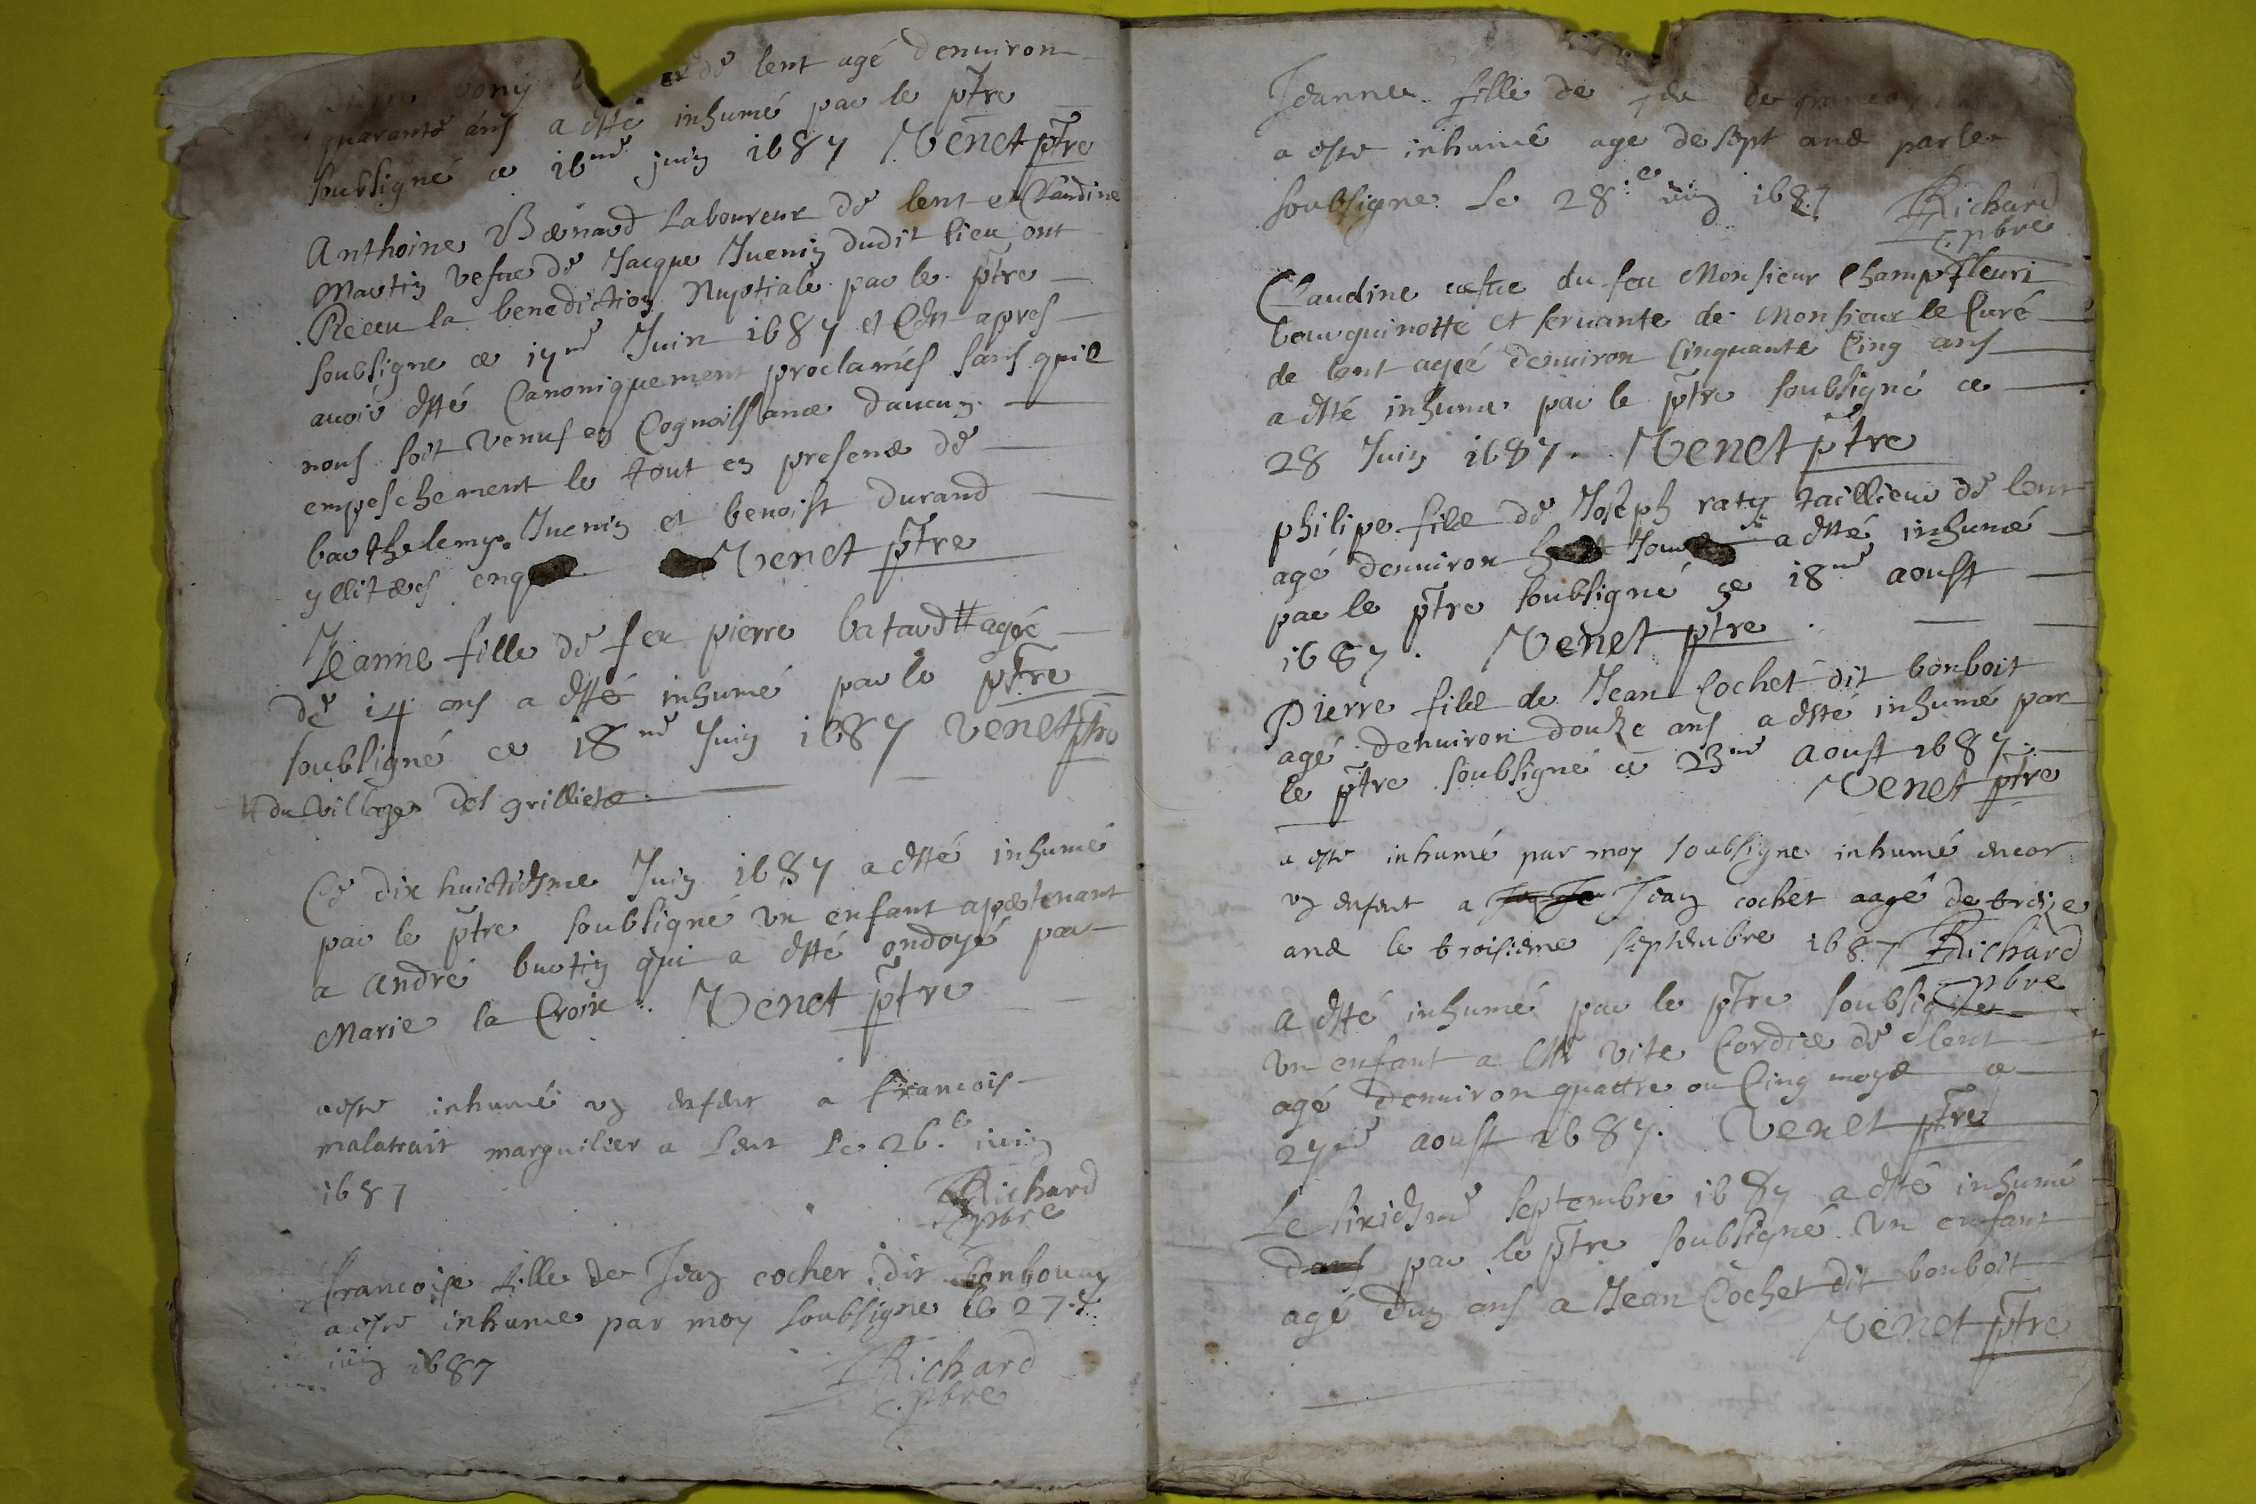 vony de lent agé denuiron
quarante ans a esté inhumé par le ptre
soubsigné ce 16me juin 1687 Venet ptre
Anthoine Bernard Laboureur de lent et Claudine
Martin vefue de Jacque Juenin dudit lieu ont
Receu la benediction Nuptiale par le ptre
soubsigne ce 17me Juin 1687 et Cen apres
auoir esté Canoniquement proclamés sans quil
nous soit venus en Cognoissance daucun
empeschement le tout en presence de
barthelemy Juenin et benoist durand
yllitères enq Venet ptre
Jeanne fille de feu pierre bataud # agée
de 14 ans a esté inhumé par le ptre
soubsigné ce 18me Juin 1687 Venet ptre
# du village des grillietz
Ce dix huictiesme Juin 1687 a esté inhumé
par le ptre soubsigné un enfant apartenant
a andré burtin qui a esté ondoyé par
Marie la Croix. Venet ptre
a este inhumé un enfant a francois
malatrait marguilier a Lent Le 26.e iuin
1687 Richard
pbre
francoise fille de Jean cochet dit
a este inhume par moy soubsigne le 27.e
iuin 1687 Richard
pbre
Jeanne fille de de
a este inhumé age de sept ans par le
soubsigne Le 28.e iuin 1687 Richard
pbre
Claudine uefue du feu Monsieur Champfleuri
bourguinotte et seruante de Monsieur le Curé
de lent agée denuiron Cinquante Cinq ans
a esté inhume par le ptre soubsigné ce
28 Juin 1687. Venet ptre
philipe fils de Joseph raty taillieur de lent
agé denuiron Jours a esté inhumé
par le ptre soubsigné ce 18me aoust
1687. Venet ptre
Pierre fils de Jean Cochet dit bonboit
agé denuiron douze ans a esté inhumé par
le ptre soubsigné ce 23me aoust 1687
Venet ptre
a este inhumé par moy soubsigne inhumé encor
un enfent a Jean cochet aagé de treize
ans le troisieme septembre 1687 Richard
pbre
a esté inhumé par le ptre soubsigné
un enfant a vite Cordier de Lent
agé denuiron quattre ou Cinq moys ce
27me aoust 1687. Venet ptre
Le sixiesme septembre 1687 a esté inhumé
dans par le ptre soubsigné un enfant
agé dun ans a Jean Cochet dit bonboit
Venet ptre